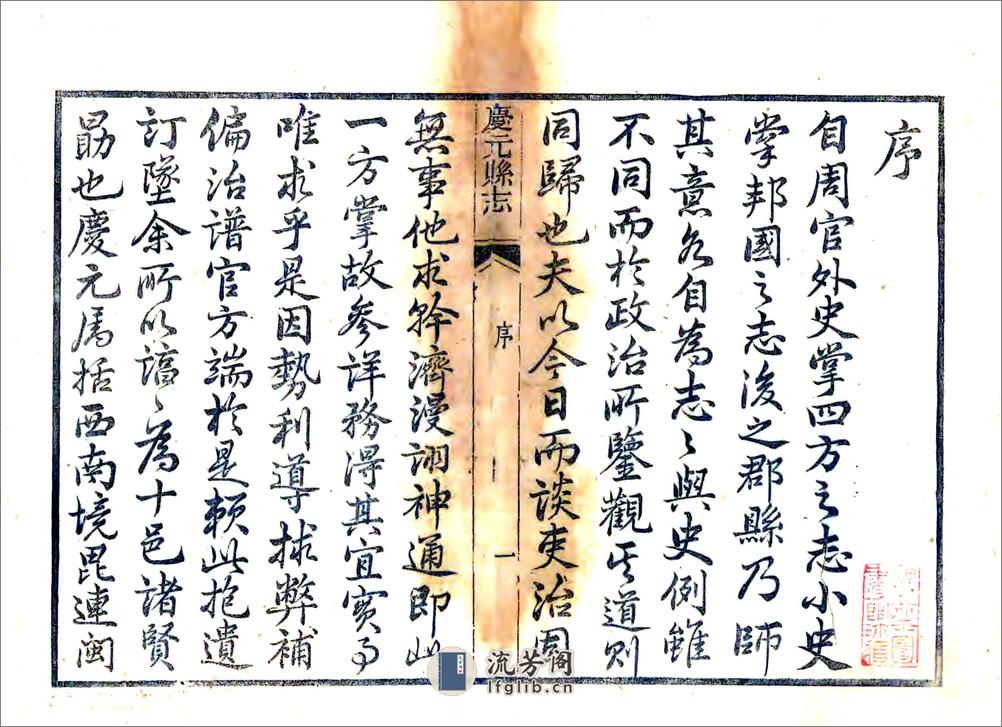 序
自周官外史掌四方之志小史
掌邦國之志後之郡縣乃師
其意各自為志〻與史例雖
不同而於政治所鑒觀其道則
同歸也夫以今日而談吏治固
慶元縣志
序
一
無事他求幹濟漫詡神通即此
一方掌故參詳務得其宜實事
唯求乎是因勢利導捄弊補
偏治譜官方端於是賴此抱遺
訂墜余所以諄〻為十邑諸賢
勗也慶元為括西南境毘連閩
流芳阁
lfglib.cn